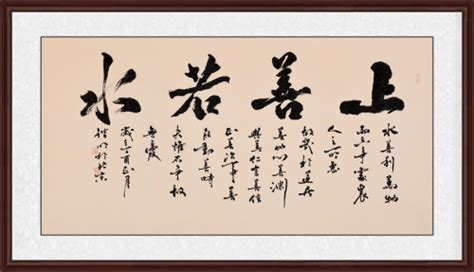 上善若水
水善利萬物
而不争處衆
人之所惡
故幾於道居
善地心善淵
與善仁言善信
正善治事善
能動善時
夫惟不争故
無憂
於北京